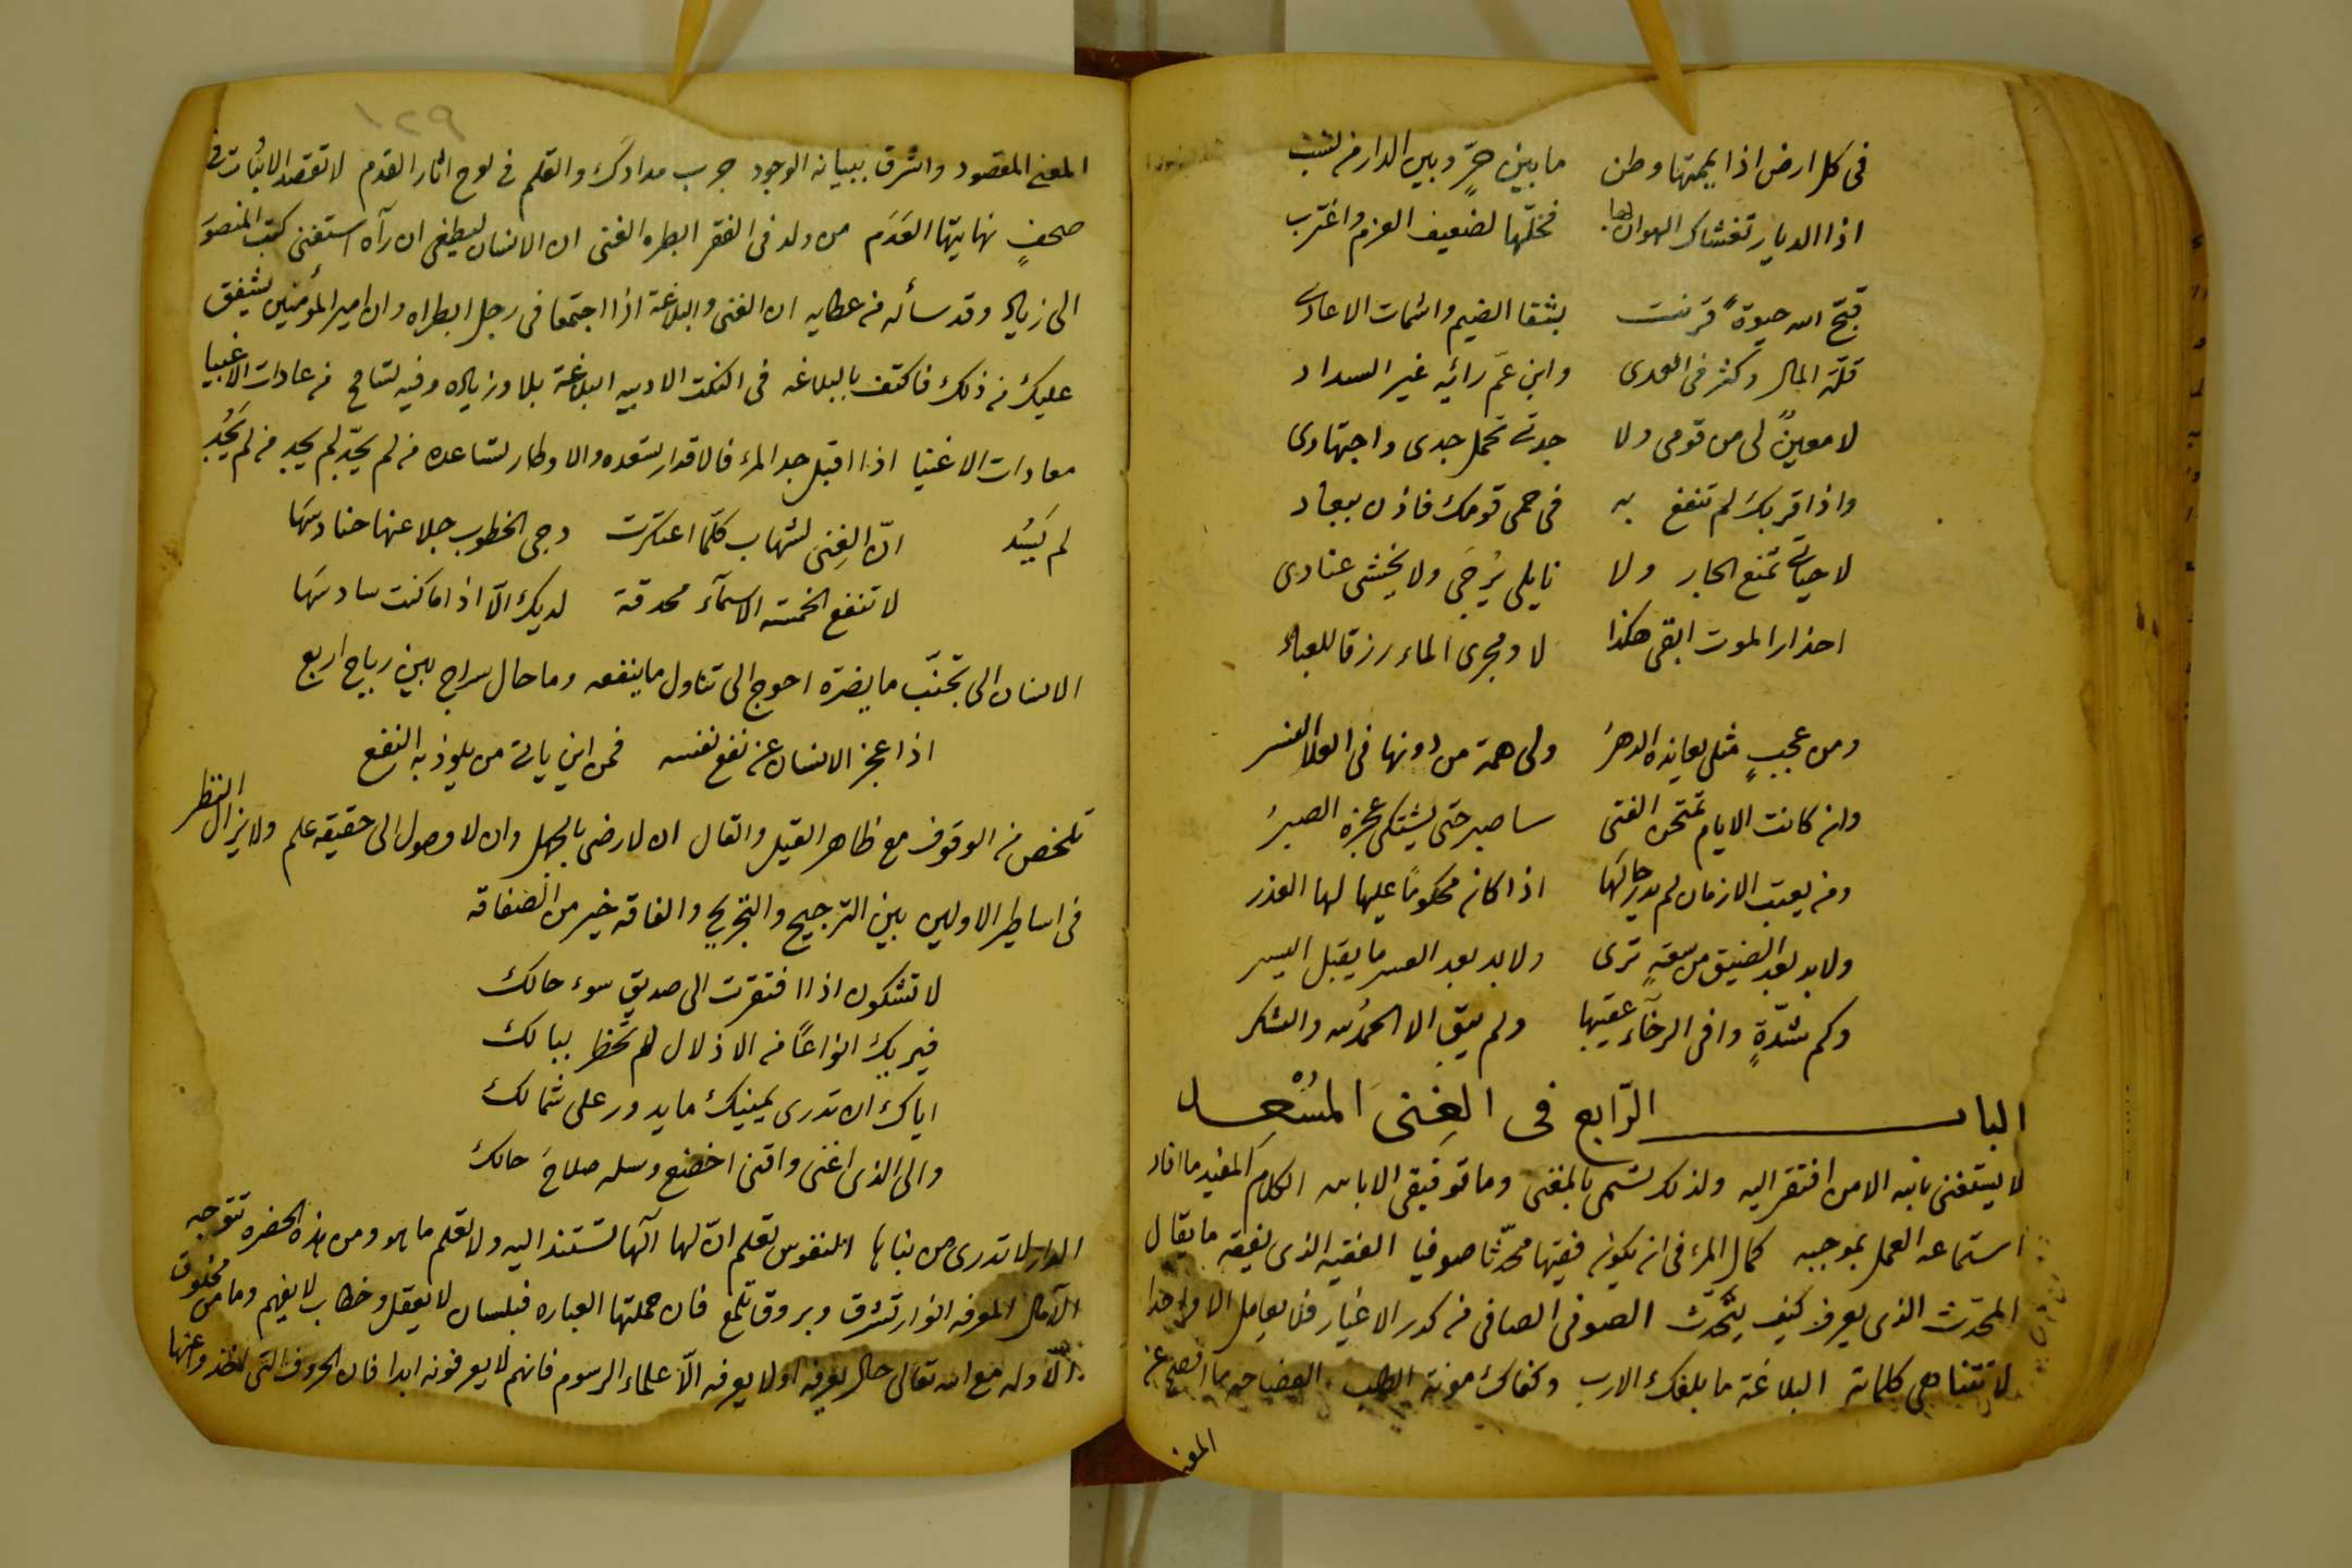 فى كل ارض اذا يممتها وطن ما بين حرٍّ وبين الدار من نسب
اذا الديار تغشاك الهوان بها فخلّها لضعيف العزم واغترب
قبّح الله حيوة قرنت بشقا الضيم واشمات الاعادى
قلة المال وكثر فى العدى وابن عمّ رائه غير السداد
لا معينٌ لى من قومى ولا جدتى تحمل جدى واجتهادى
واذا قربك لم تنفع به فى حمى قومك فاذن ببعاد
لا حياتى تمنع الجار ولا نايلى يُرجَى ولا يخشى عنادى
احذار الموت ابقى هكذا لا ومجرى الماء رزقا للعباد
ومن عجبٍ مثلى يعانده الدهرُ ولى همة من دونها فى العلا النسر
وان كانت الايام تمتحن الفتى ساصبر حتى يشتكى عجزه الصبرُ
ومن يعتب الازمان لم يدر حالها اذا كان محكومًا عليها لها العذر
ولا بد بعد الضيق من سعةٍ ترى ولا بد بعد العسر ما يقبل اليسر
وكم شدّةٍ وافى الرخآء عقيبها ولم يبق الا الحمدُ لله والشكر
الباب الرّابع فى الغِنى المُسْعِد
لا يستغنى بالله الا من افتقر اليه ولذلك تسمى بالمغنى وما توفيقى الا بالله الكلام المفيد ما افاد
استماعه العمل بموجبه كمال المرء فى ان يكون فقيها محدّثا صوفيا الفقيه الذى يفقه ما يقال
المحدّث الذى يعرف كيف يتحّدث الصوفى الصافى من كدر الاغيار فلا يعامل الا واحدا
لا تتناهى كلماته البلاغة ما بلغك الارب وكفاك مونة الطلب الفصاحة ما افصح عن
المعنى
١٢٩
المعنى المقصود واشرق ببيانه الوجود جرب مدادك والقلم فى لوح اثار القدم لا تقصد الاثبات فى
صحفٍ نهايتها العَدَم من ولد فى الفقر ابطره الغنى ان الانسان ليطغى ان رآه استغنى كتب المنصور
الى زياد وقد سأله من عطايه ان الغنى والبلاغة اذا اجتمعا فى رجل ابطراه وان امير المؤمنين يشفق
عليك من ذلك فاكتف بالبلاغه فى النكت الادبيه البلاغة بلا وزياده وفيه تسامح من عادات الاغبيا
معادات الاغنيا اذا اقبل جد المرء فالاقدار تسعده والاوطار تساعده من لم يجُد لم يجد من لم يَجُد
لم يَسُد انّ الغِنى لشهاب كلّما اعتكرت دجى الخطوب جلا عنها حنادسَها
لا تنفع الخمسة الاسمآء محدقة لديك الّا اذا ما كنت سادسَها
الانسان الى تجنّب ما يضرّه احوج الى تناول ما ينفعه وما حال سراج بين رياح اربع
اذا عجز الانسان عن نفع نفسه فمن اين ياتى من يلوذ به النفع
تلخص من الوقوف مع ظاهر القيل والقال ان لارضى بالجهل وان لا وصول الى حقيقه علم ولا يزال النظر
فى اساطير الاولين بين الترجيح والتجريح والفاقة خير من الصفاقة
لا تشكون اذا افتقرت الى صديق سوء حالك
فيريك انواعًا من الاذلال لم تخطر ببالك
اياك ان تدرى يمينك ما يدور على شمالك
والى الذى اغنى واقنى اخضع وسله صلاحَ حالك
الدار لا تدرى من بناها النفوس تعلم انّ لها آلها تستند اليه ولا تعلم ما هو ومن هذه الحضره تتوجه
الآمال المعرفه انوار تشرق وبروق تلمع فان حملتها العباره فبلسان لا يعقل وخطاب لا يفهم وما من مخلوق
الّا وله مع الله تعالى حال يعرفه او لا يعرفه الّا علماء الرسوم فانهم لا يعرفونه ابدا فان الحروف التى اخذوا عنها